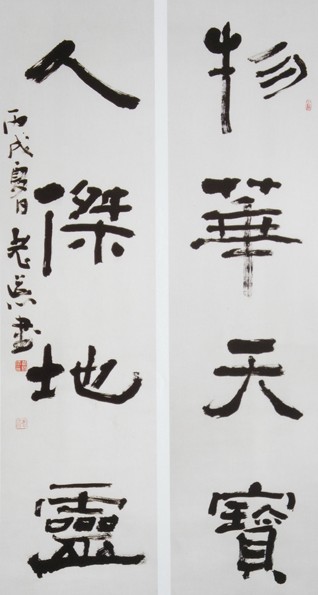 物華天寶
人傑地靈
丙戌夏日老吳書